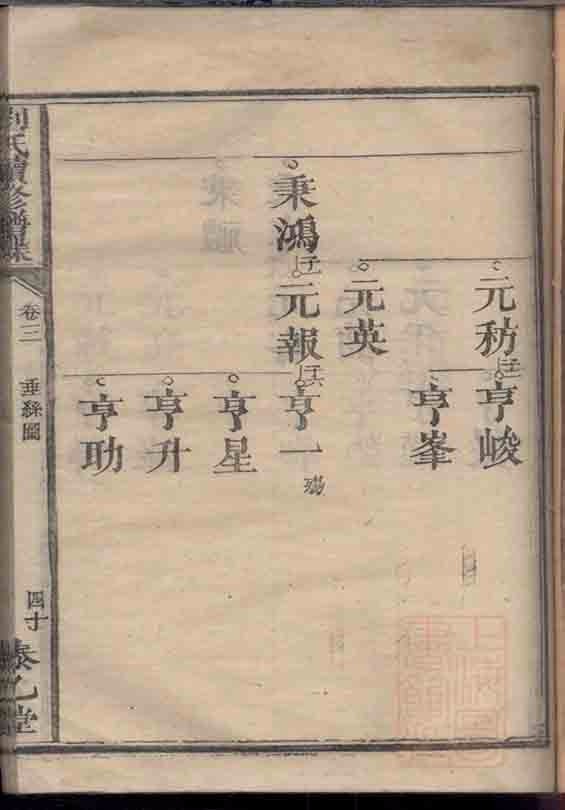 元秎
亨峻
亨峯
元英
秉鴻
子一
元報
子六
亨一
殤
亨星
亨升
亨助
劉氏續修譜牒
卷三
垂絲圖
四十